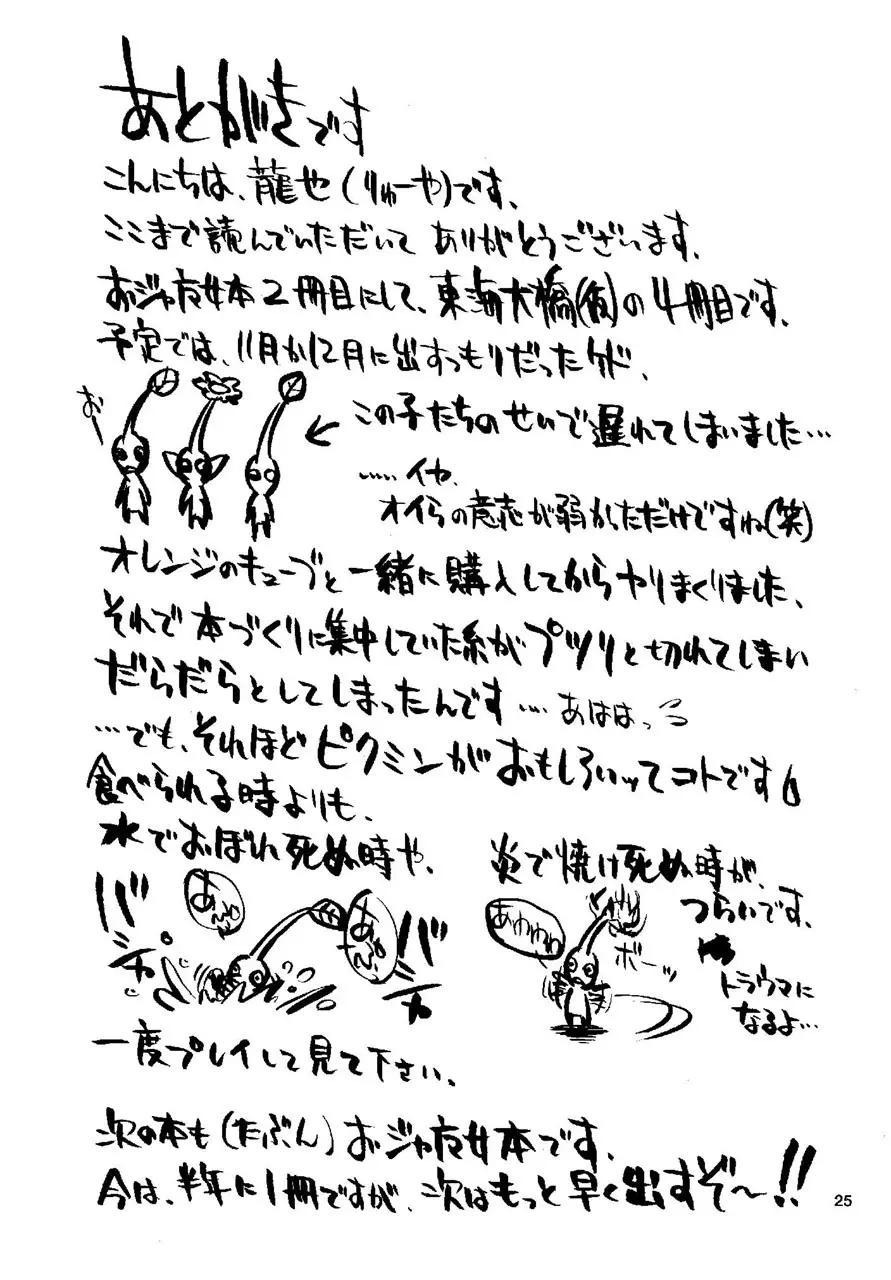 あとがきです
こんにちは、龍也(りゅーや)です、
ここまで読んでいただいて ありがとうございます、
おジャ魔女本2冊目にして、東海大橋(仮)の4冊目です、
予定では、11月か12月に出すつもりだったケド、
おー
← この子たちのせいで遅れてしまいました…
……イヤ、
オイらの意志が弱かっただけですね(笑)
オレンジのキューブと一緒に購入してからやりまくりました、
それで本づくりに集中していた糸がプツリと切れてしまい
だらだらとしてしまったんです…. あははっ
…でも、それほどピクミンがおもしろいってコトです
食べられる時よりも、
水でおぼれ死ぬ時や、
炎で焼け死ぬ時が、
つらいです、
トラウマに
なるよ…
バチャ
バチャ
あわわわ
ボーッ
一度プレイして見て下さい、
次の本も(たぶん)おジャ魔女本です、
今は、半年に1冊ですが、次はもっと早く出すぞ〜!!
25